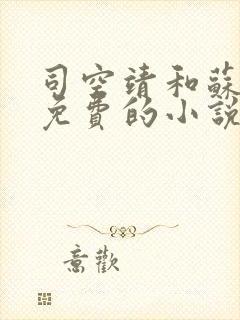 司空靖和蘇
免費的小說
意歡